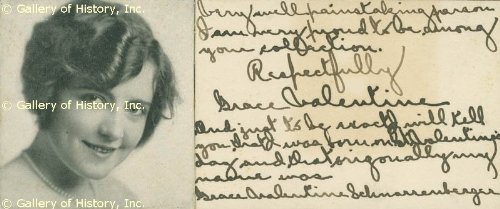 © Gallery of History, Inc.
© Gallery of History, Inc.
© Gallery of History, Inc.
very well painstaking person
I am very proud to be among
your collection.
Respectfully
Grace Valentine
And just to be exact will tell
you that I was born on St Valentines
day and that origonally my
name was
Grace Valentine Schnarrenberger